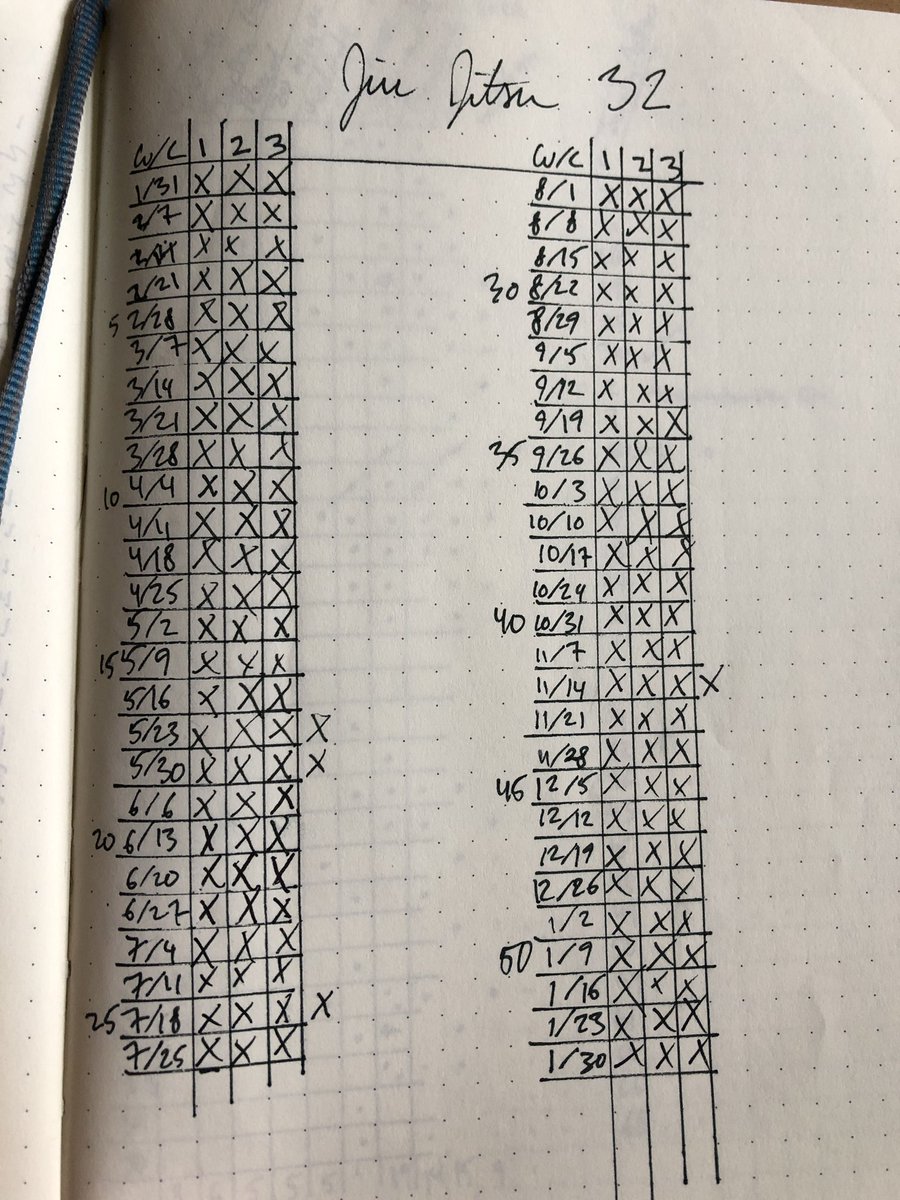 Jiu Jitsu 32
W/C 1 2 3
1/31 X X X
2/7 X X X
2/14 X X X
2/21 X X X
5 2/28 X X X
3/7 X X X
3/14 X X X
3/21 X X X
3/28 X X X
10 4/4 X X X
4/11 X X X
4/18 X X X
4/25 X X X
5/2 X X X
15 5/9 X X X
5/16 X X X
5/23 X X X X
5/30 X X X X
6/6 X X X
20 6/13 X X X
6/20 X X X
6/27 X X X
7/4 X X X
7/11 X X X
25 7/18 X X X X
7/25 X X X
W/C 1 2 3
8/1 X X X
8/8 X X X
8/15 X X X
30 8/22 X X X
8/29 X X X
9/5 X X X
9/12 X X X
9/19 X X X
35 9/26 X X X
10/3 X X X
10/10 X X X
10/17 X X X
10/24 X X X
40 10/31 X X X
11/7 X X X
11/14 X X X X
11/21 X X X
11/28 X X X
45 12/5 X X X
12/12 X X X
12/19 X X X
12/26 X X X
1/2 X X X
50 1/9 X X X
1/16 X X X
1/23 X X X
1/30 X X X